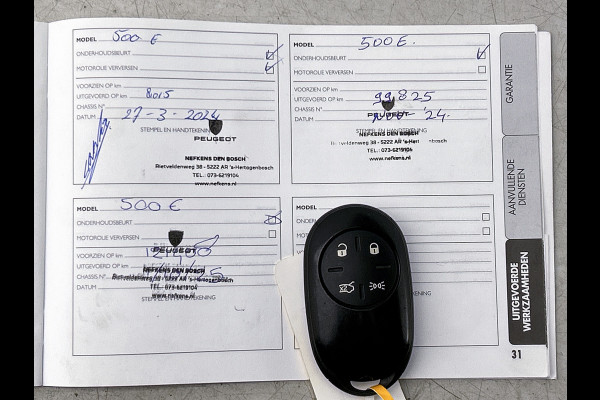 MODEL 500 E
ONDERHOUDSBEURT
MOTOROLIE VERVERSEN
VOORZIEN OP km
UITGEVOERD OP km 8015
CHASSIS N°
DATUM 27-3-2024
STEMPEL EN HANDTEKENING
PEUGEOT
NEFKENS DEN BOSCH
Rietveldenweg 38 - 5222 AR 's-Hertogenbosch
TEL.: 073-6219104
www.nefkens.nl
MODEL 500 E.
ONDERHOUDSBEURT
MOTOROLIE VERVERSEN
VOORZIEN OP km
UITGEVOERD OP km
CHASSIS N°
PEUGEOT
DATUM '24.
STEMPEL EN HANDTEKENING
NEFKENS DEN BOSCH
Rietveldenweg 38 - 5222 AR 's-Hert
TEL.: 073-6219104
www.nefkens.nl
MODEL 500 E
ONDERHOUDSBEURT
MOTOROLIE VERVERSEN
PEUGEOT
VOORZIEN OP km
UITGEVOERD OP km
NEFKENS DEN BOSCH
CHASSIS N°
Rietveldenweg 38 - 5222 AR 's-Hertogenbosch
DATUM
TEL.: 073-6219104
www.nefkens.nl
STEMPEL EN HANDTEKENING
MODEL
ONDERHOUDSBEURT
HANDTEKENING
GARANTIE
AANVULLENDE
DIENSTEN
UITGEVOERDE
WERKZAAMHEDEN
31